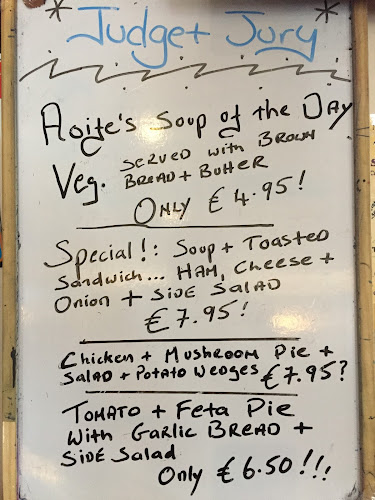 * Judge + Jury *
Aoife's Soup of the Day
Veg. Served with Brown
Bread + Butter
Only € 4.95!
Special!: Soup + Toasted
Sandwich... Ham, Cheese +
Onion + Side Salad
€7.95!
Chicken + Mushroom Pie +
Salad + Potato Wedges €7.95?
Tomato + Feta Pie
With Garlic Bread +
Side Salad
Only €6.50!!!